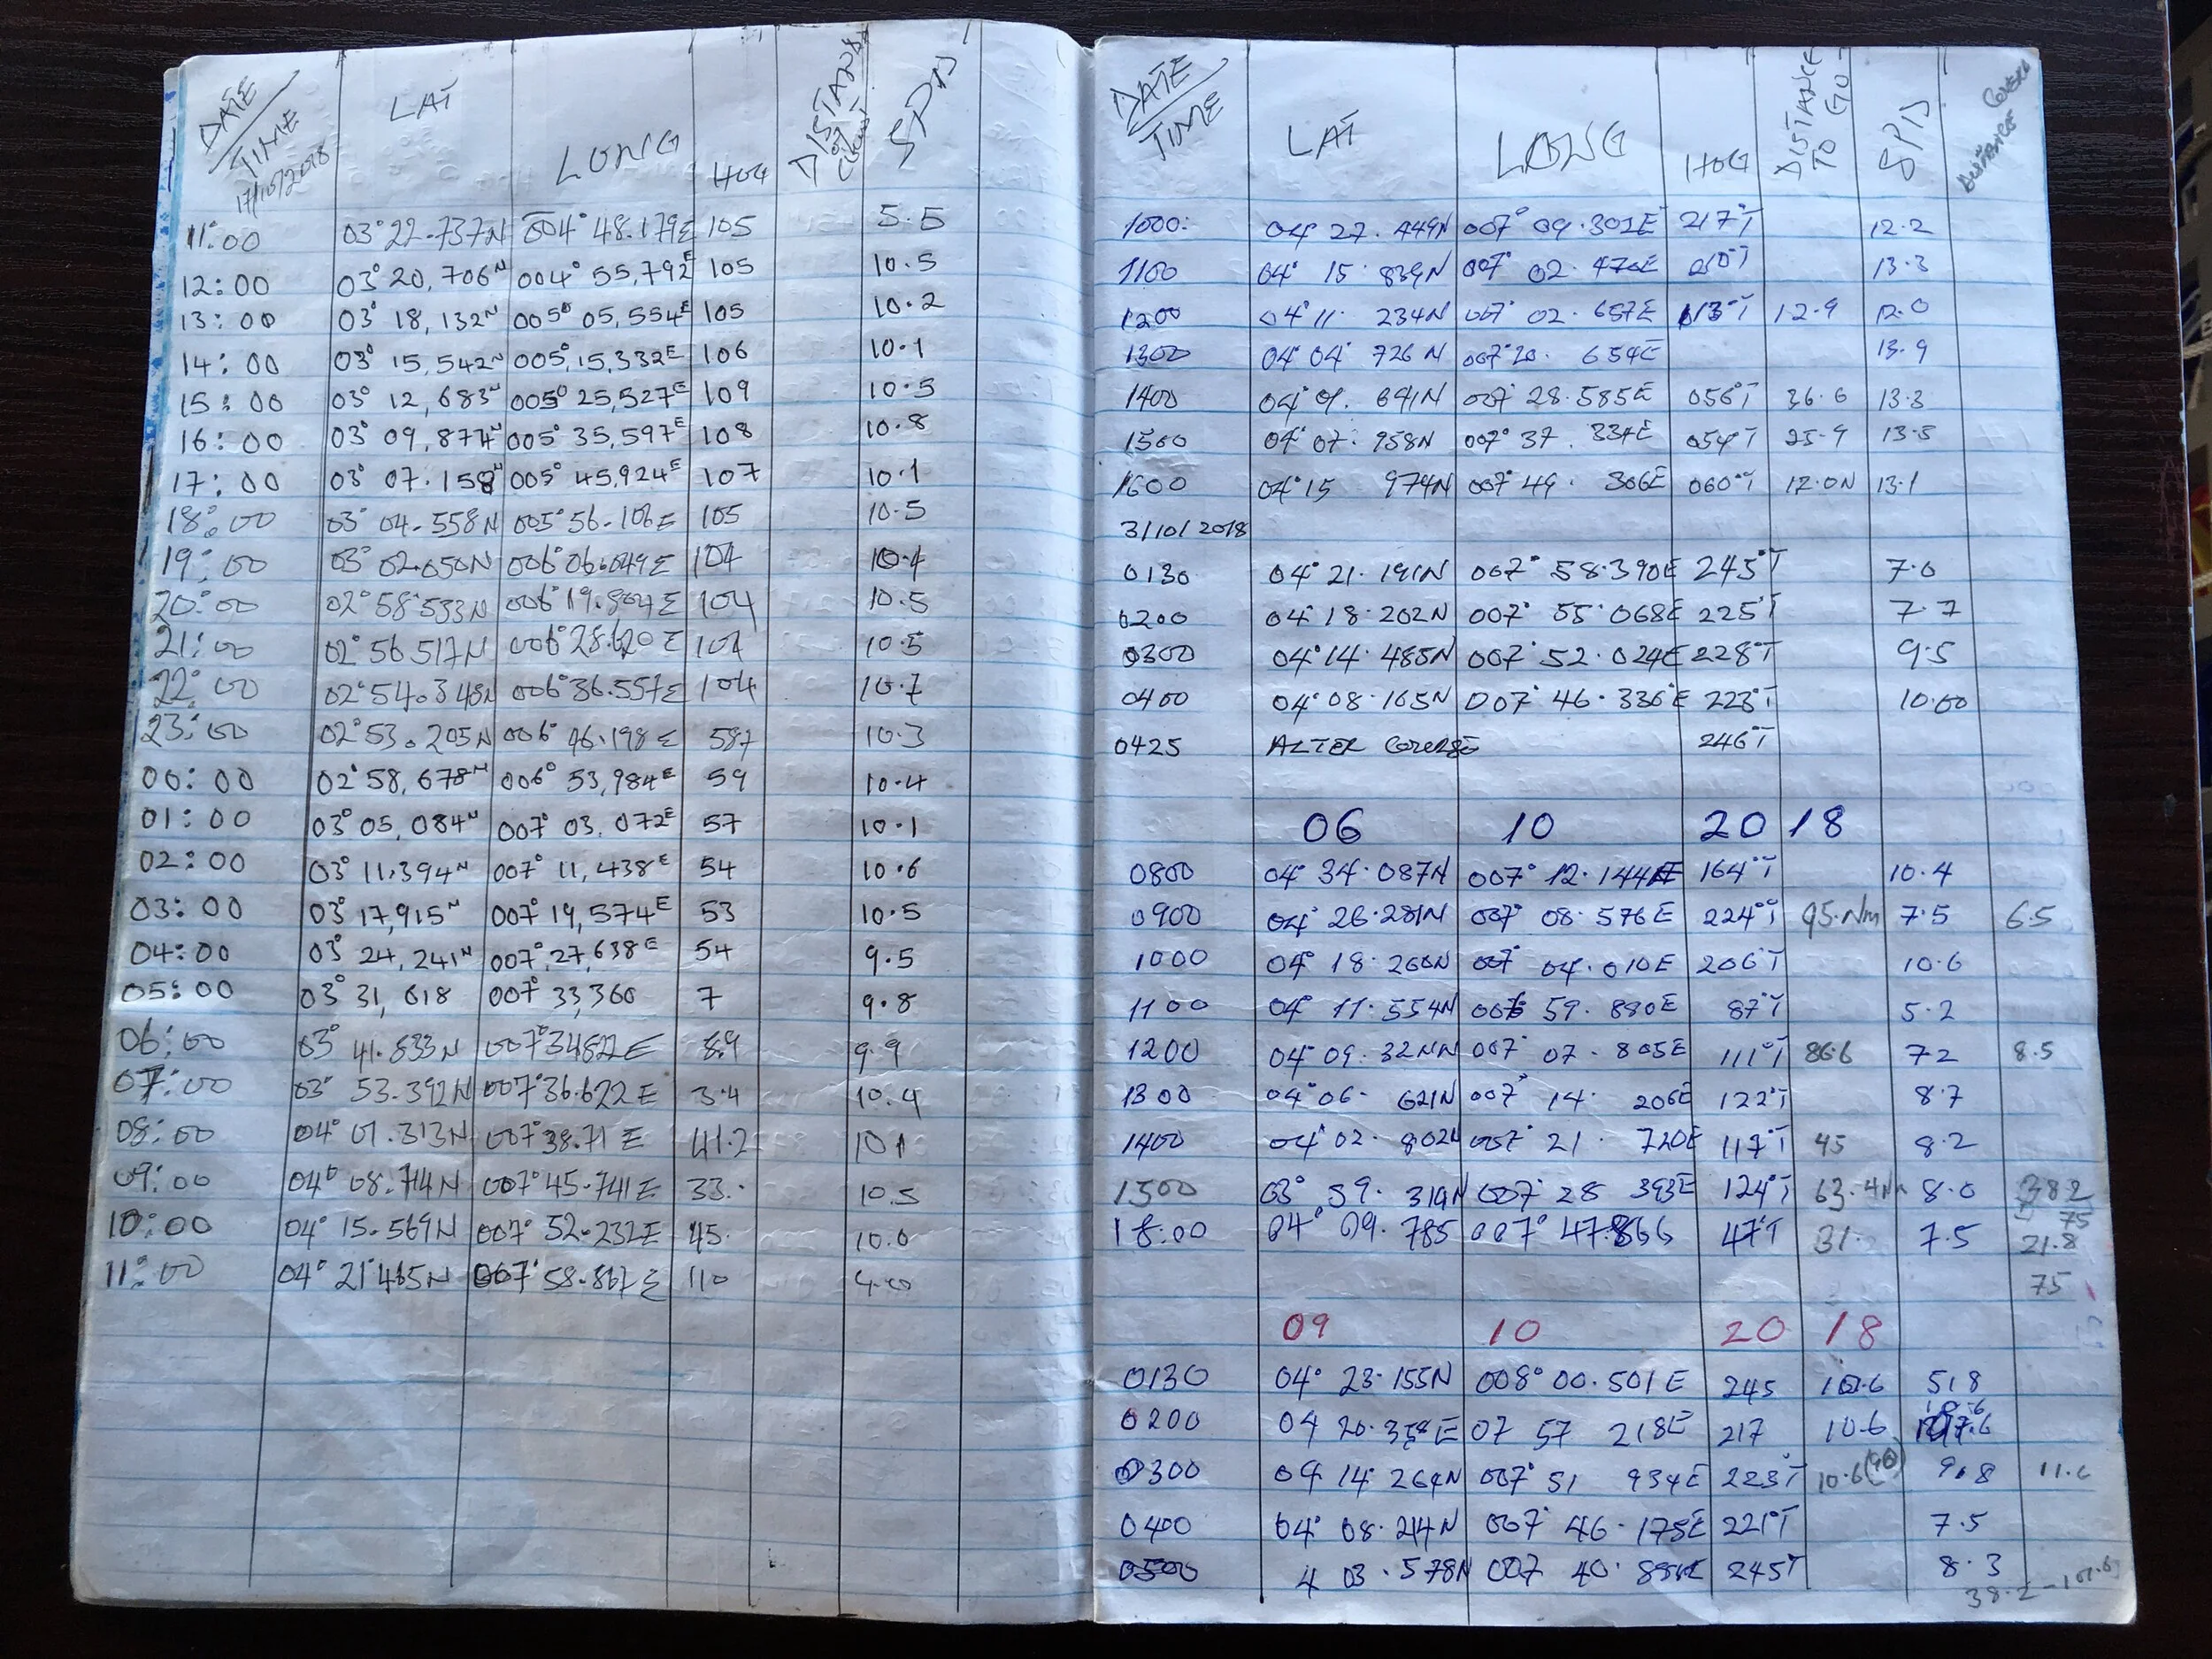 DATE/TIME LAT LONG HOG SPD
17/10/2018
11:00 03° 22.737N 004° 48.179E 105 5.5
12:00 03° 20,706N 004° 55,792E 105 10.5
13:00 03° 18,132N 005° 05,554E 105 10.2
14:00 03° 15,542N 005° 15,332E 106 10.1
15:00 03° 12,683N 005° 25,527E 109 10.5
16:00 03° 09,877N 005° 35,597E 108 10.8
17:00 03° 07.158N 005° 45,924E 107 10.1
18:00 03° 04.558N 005° 56.106E 105 10.5
19:00 03° 02.050N 006° 06.049E 104 10.4
20:00 02° 58.533N 006° 19.804E 104 10.5
21:00 02° 56.517N 006° 28.620E 104 10.5
22:00 02° 54.348N 006° 36.557E 104 10.7
23:00 02° 53.205N 006° 46.198E 10.3
00:00 02° 58,678N 006° 53,984E 59 10.4
01:00 03° 05,084N 007° 03,072E 57 10.1
02:00 03° 11,394N 007° 11,438E 54 10.6
03:00 03° 17,915N 007° 19,574E 53 10.5
04:00 03° 24,241N 007° 27,638E 54 9.5
05:00 03° 31,618 007° 33,360 7 9.8
06:00 03° 41.833N 007° 34822E 8.9 9.9
07:00 03° 53.392N 007° 36.622E 3.4 10.4
08:00 04° 01.313N 007° 38.71E 41.2 10.1
09:00 04° 08.714N 007° 45.741E 33. 10.5
10:00 04° 15.569N 007° 52.232E 45. 10.0
11:00 04° 21.465N 007° 58.867E 110 4.00
DATE/TIME LAT LONG HOG DISTANCE TO GO SPD DISTANCE COVERED
1000: 04° 27.449N 007° 09.302E 217°T 12.2
1100 04° 15.839N 007° 02.476E 210°T 13.3
1200 04° 11. 234N 007° 02.657E 113°T 12.9 12.0
1300 04° 04' 726N 007° 20. 654E 13.9
1400 04° 01. 641N 007° 28.585E 056°T 36.6 13.3
1500 04° 07. 958N 007° 37.334E 054°T 25.9 13.5
1600 04° 15 974N 007° 49. 306E 060°T 12.0N 13.1
3/10/2018
0130 04° 21.191N 007° 58.390E 245°T 7.0
0200 04° 18.202N 007° 55.068E 225°T 7.7
0300 04° 14.485N 007° 52.024E 228°T 9.5
0400 04° 08.165N 007° 46.336E 223°T 10.00
0425 ALTER COURSE 246°T
06 10 20 18
0800 04° 34.087N 007° 12.144E 164°T 10.4
0900 04° 26.281N 007° 08.576E 224°T 95.Nm 7.5 6.5
1000 04° 18.260N 007° 04.010E 206°T 10.6
1100 04° 11.554N 006 59.880E 87°T 5.2
1200 04° 09.32NN 007° 07.805E 111°T 86.6 7.2 8.5
1300 04° 06. 621N 007° 14. 206E 122°T 8.7
1400 04° 02. 802N 007° 21. 720E 117°T 45 8.2
1500 03° 59. 319N 007° 28 393E 124°T 63.4Nm 8.0 38.2
18:00 04° 09.785 007° 47.866 47°T 31. 7.5 75
21.8
75
09 10 20 18
0130 04° 23.155N 008° 00.501E 245 101.6 5.8
0200 04 20. E 07 57 218E 217 10.6
0300 04 14 264N 007° 51 934E 223°T 10.6 9.8 11.6
0400 04° 08.214N 007° 46.175E 221°T 7.5
0500 4 03.578N 007 40. 245T 8.3
38.2-